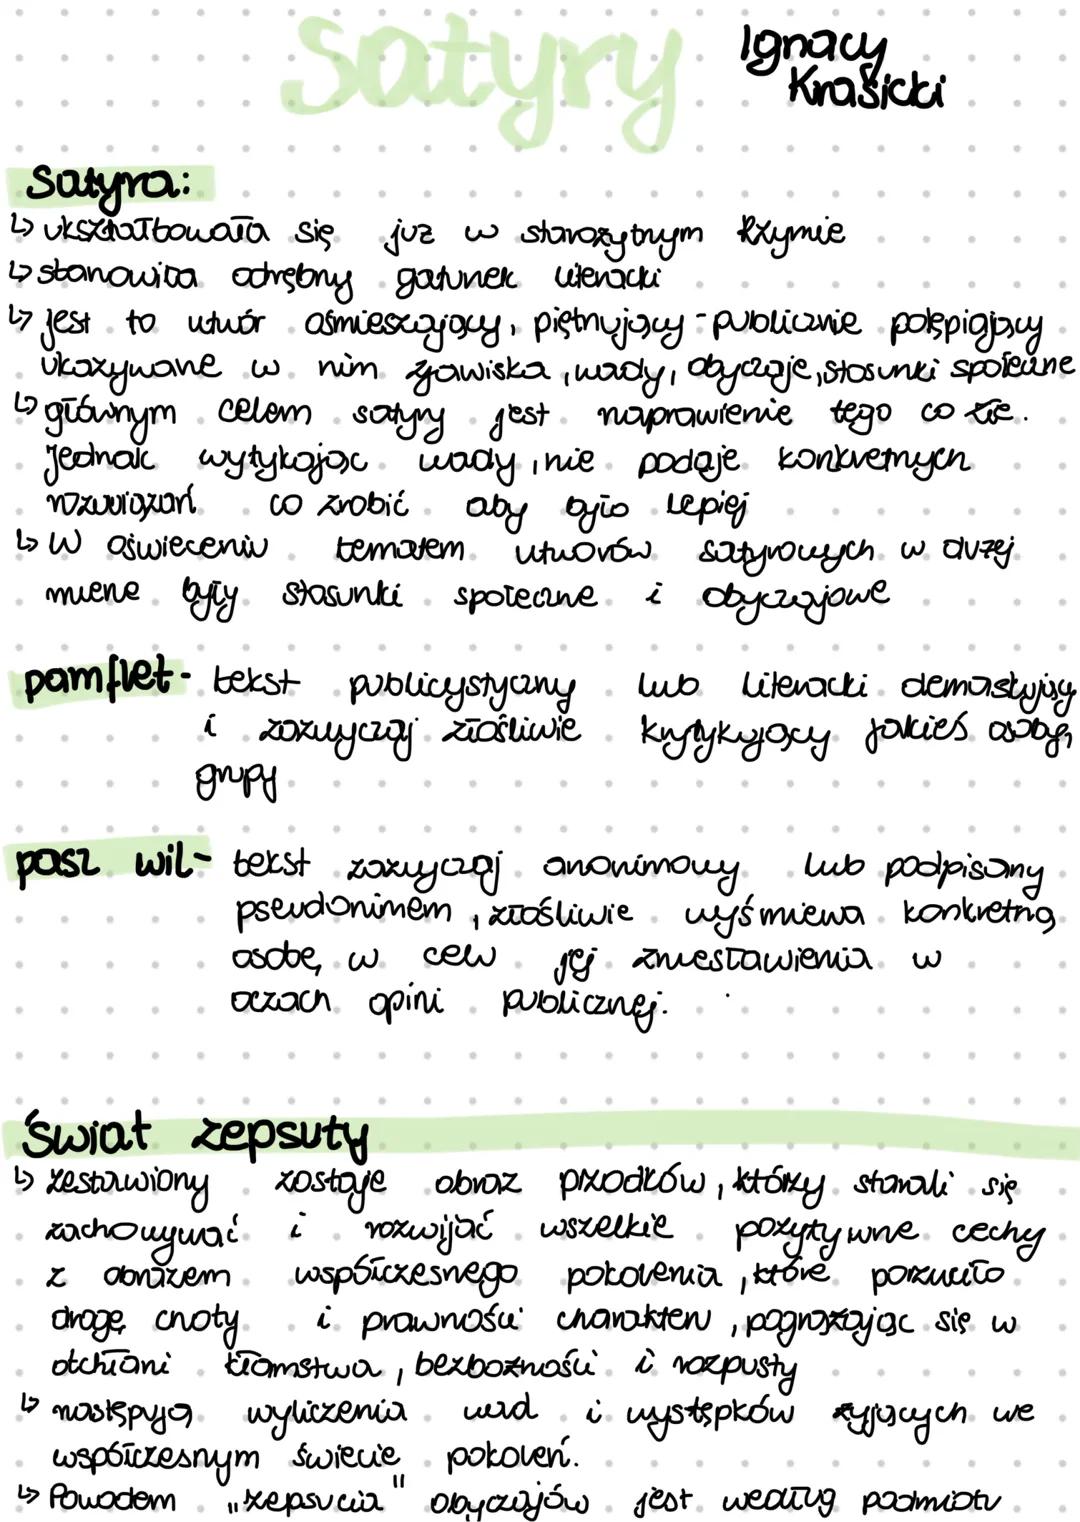 Satyry Ignacy
Krasicki
Satyra:
↳ ukształtowała się już w starożytnym Rzymie
↳ stanowiła odrębny gatunek literacki
↳ jest to utwór ośmieszający, piętnujący - publicznie potępiający
ukazywane w nim zjawiska, wady, obyczaje, stosunki społeczne
↳ głównym celem satyry jest naprawienie tego co złe.
Jednak wytykając wady, nie podaje konkretnych
rozwiązań co zrobić aby było lepiej
↳ W oświeceniu tematem utworów satyrowych w dużej
mierze były stosunki społeczne i obyczajowe
pamflet - tekst publicystyczny lub literacki demaskujący
i zazwyczaj złośliwie krytykujący jakieś osoby,
grupy
pasz wil - tekst zazwyczaj anonimowy lub podpisany
pseudonimem, złośliwie wyśmiewa konkretną
osobę, w celu jej zniesławienia w
oczach opini publicznej.
Świat zepsuty
↳ zestawiony zostaje obraz przodków, którzy starali się
zachowywać i rozwijać wszelkie pozytywne cechy
z obrazem współczesnego pokolenia, które porzuciło
drogę cnoty i prawności charakteru, pogrążając się w
otchłani kłamstwa, bezbożności i rozpusty
↳ następują wyliczenia wad i występków żyjących we
współczesnym świecie pokoleń.
↳ Powodem „zepsucia" obyczajów jest według podmiotu